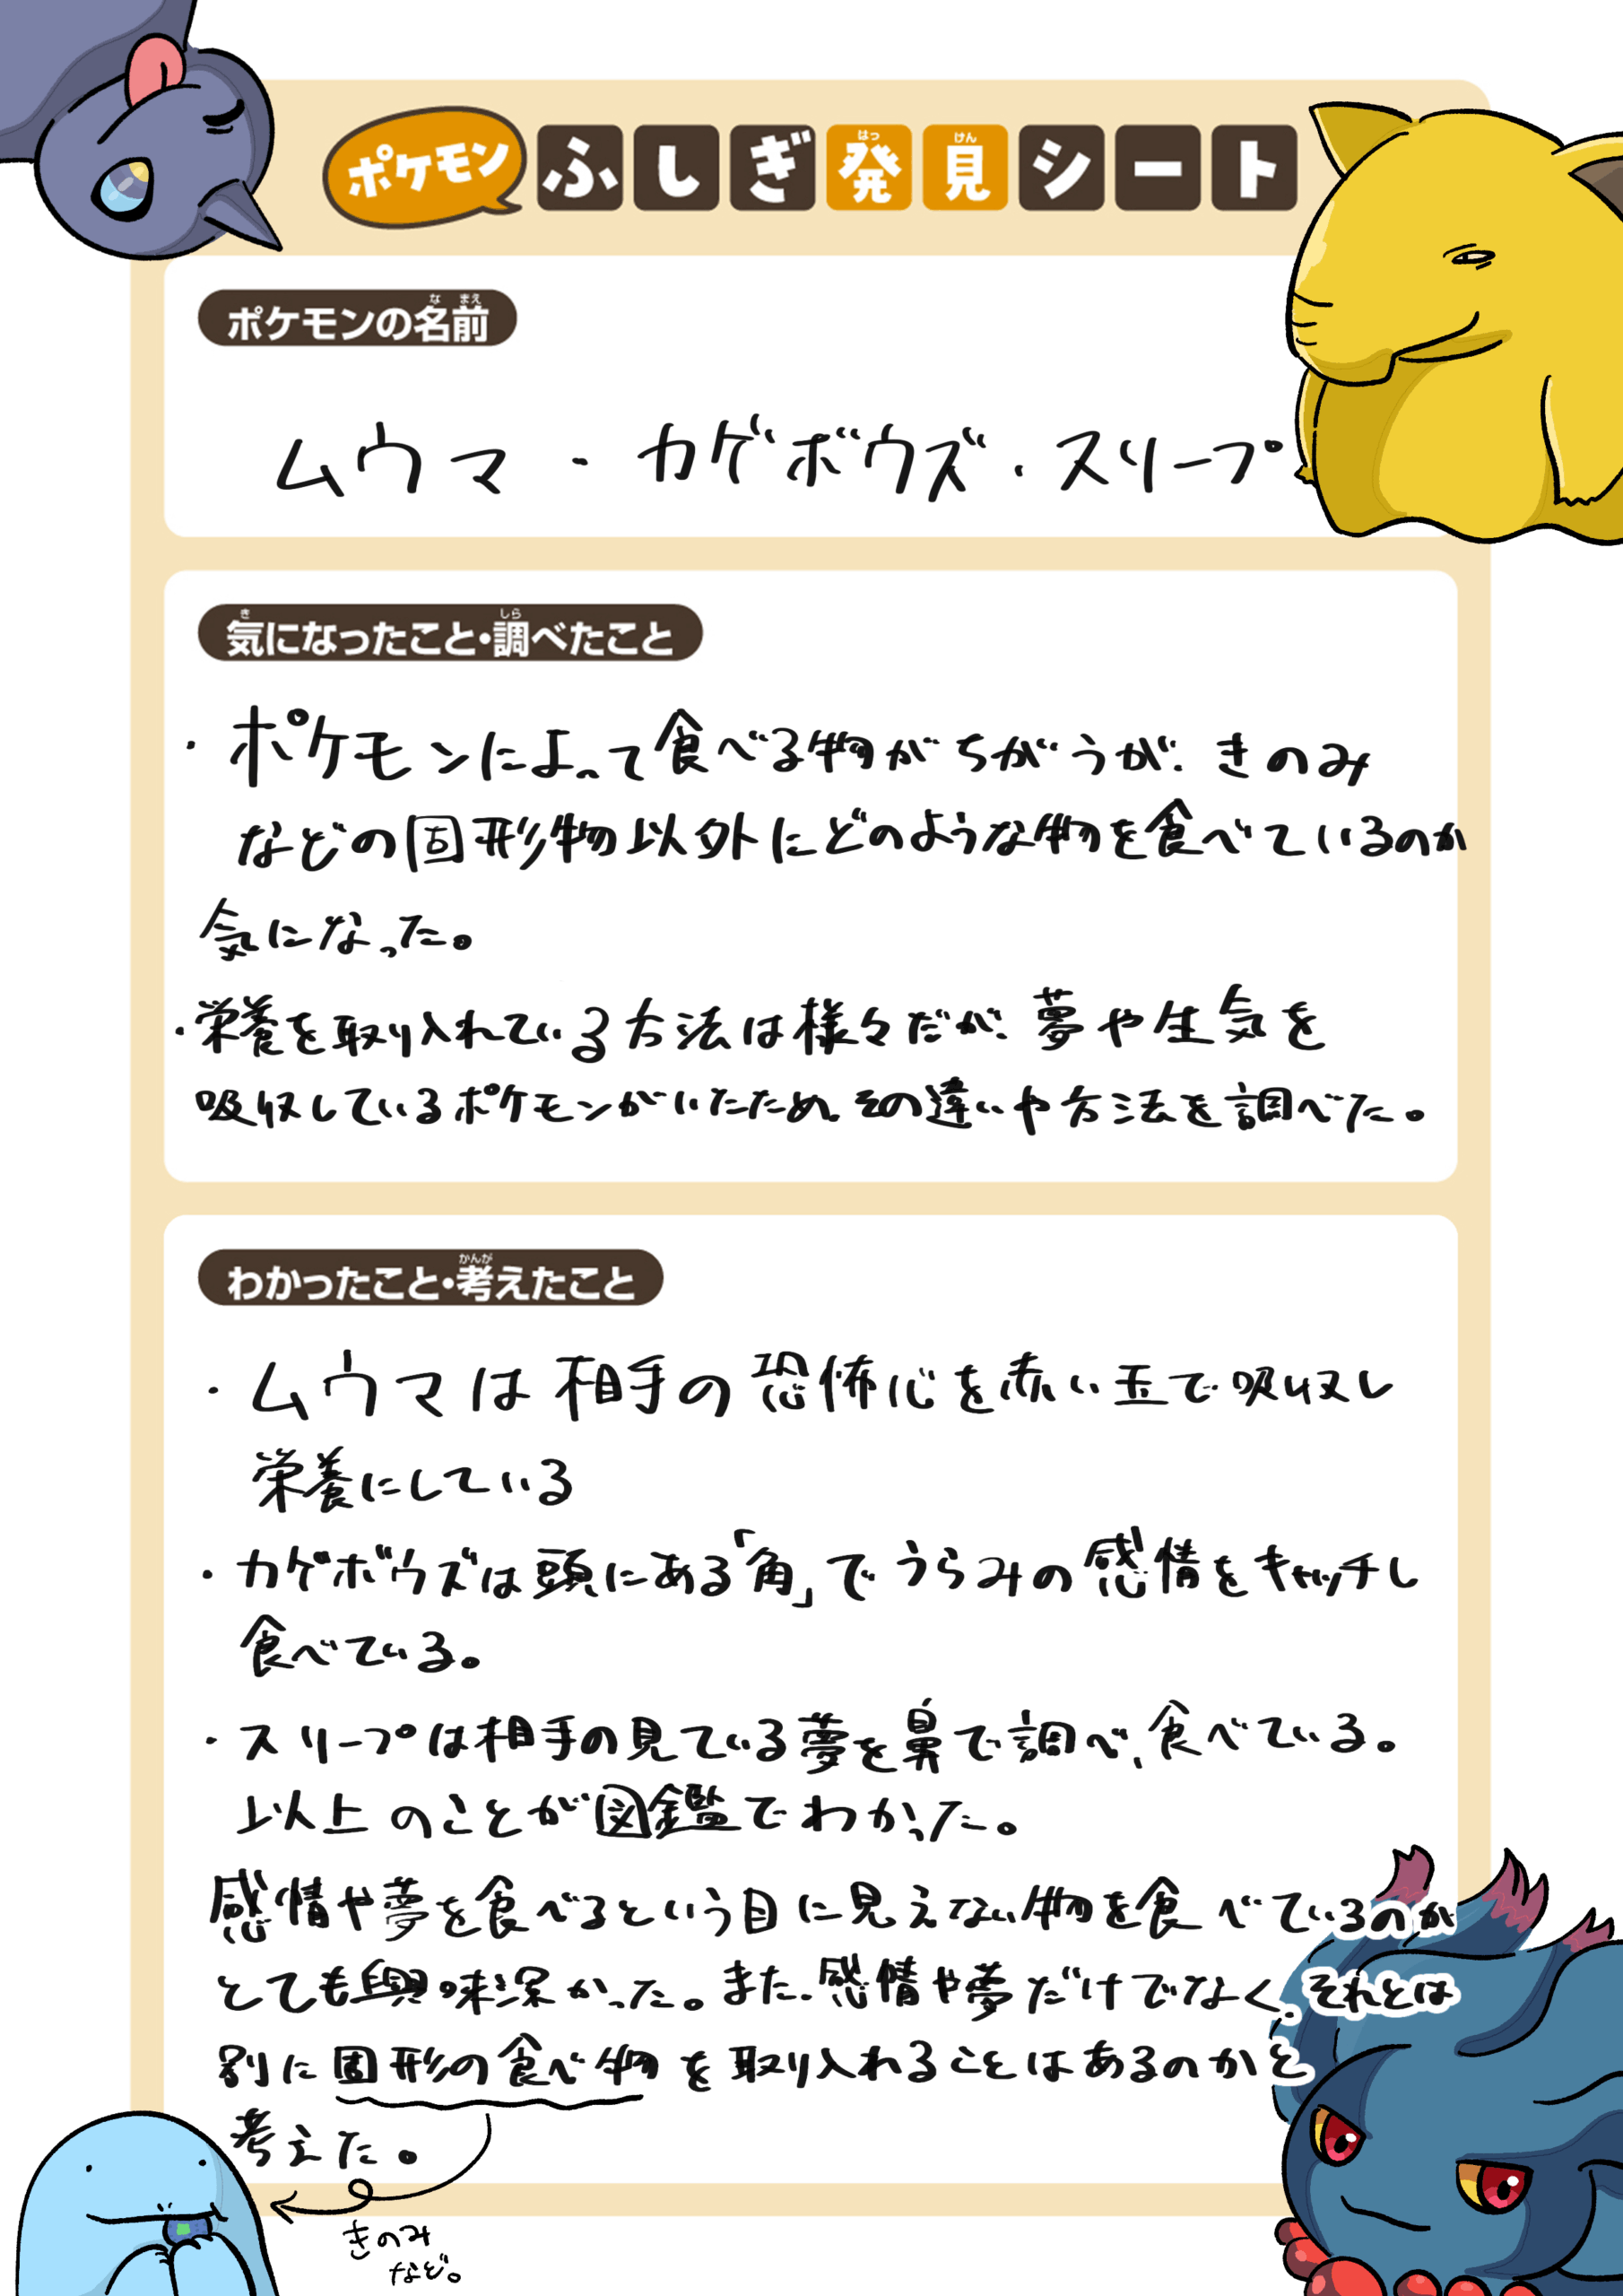 ポケモンふしぎ発見シート
ポケモンの名前
ムウマ・カゲボウズ・スリープ
気になったこと・調べたこと
・ポケモンによって食べる物がちがうが、きのみ
などの固形物以外にどのような物を食べているのか
気になった。
・栄養を取り入れている方法は様々だが、夢や生気を
吸収しているポケモンがいたため、その違いや方法を調べた。
わかったこと・考えたこと
・ムウマは相手の恐怖心を赤い玉で吸収し
栄養にしている
・カゲボウズは頭にある「角」でうらみの感情をキャッチし
食べている。
・スリープは相手の見ている夢を鼻で調べ、食べている。
以上のことが図鑑でわかった。
感情や夢を食べるという目に見えない物を食べているのが
とても興味深かった。また、感情や夢だけでなく、それとは
別に固形の食べ物を取り入れることはあるのかと
考えた。
きのみ
など。